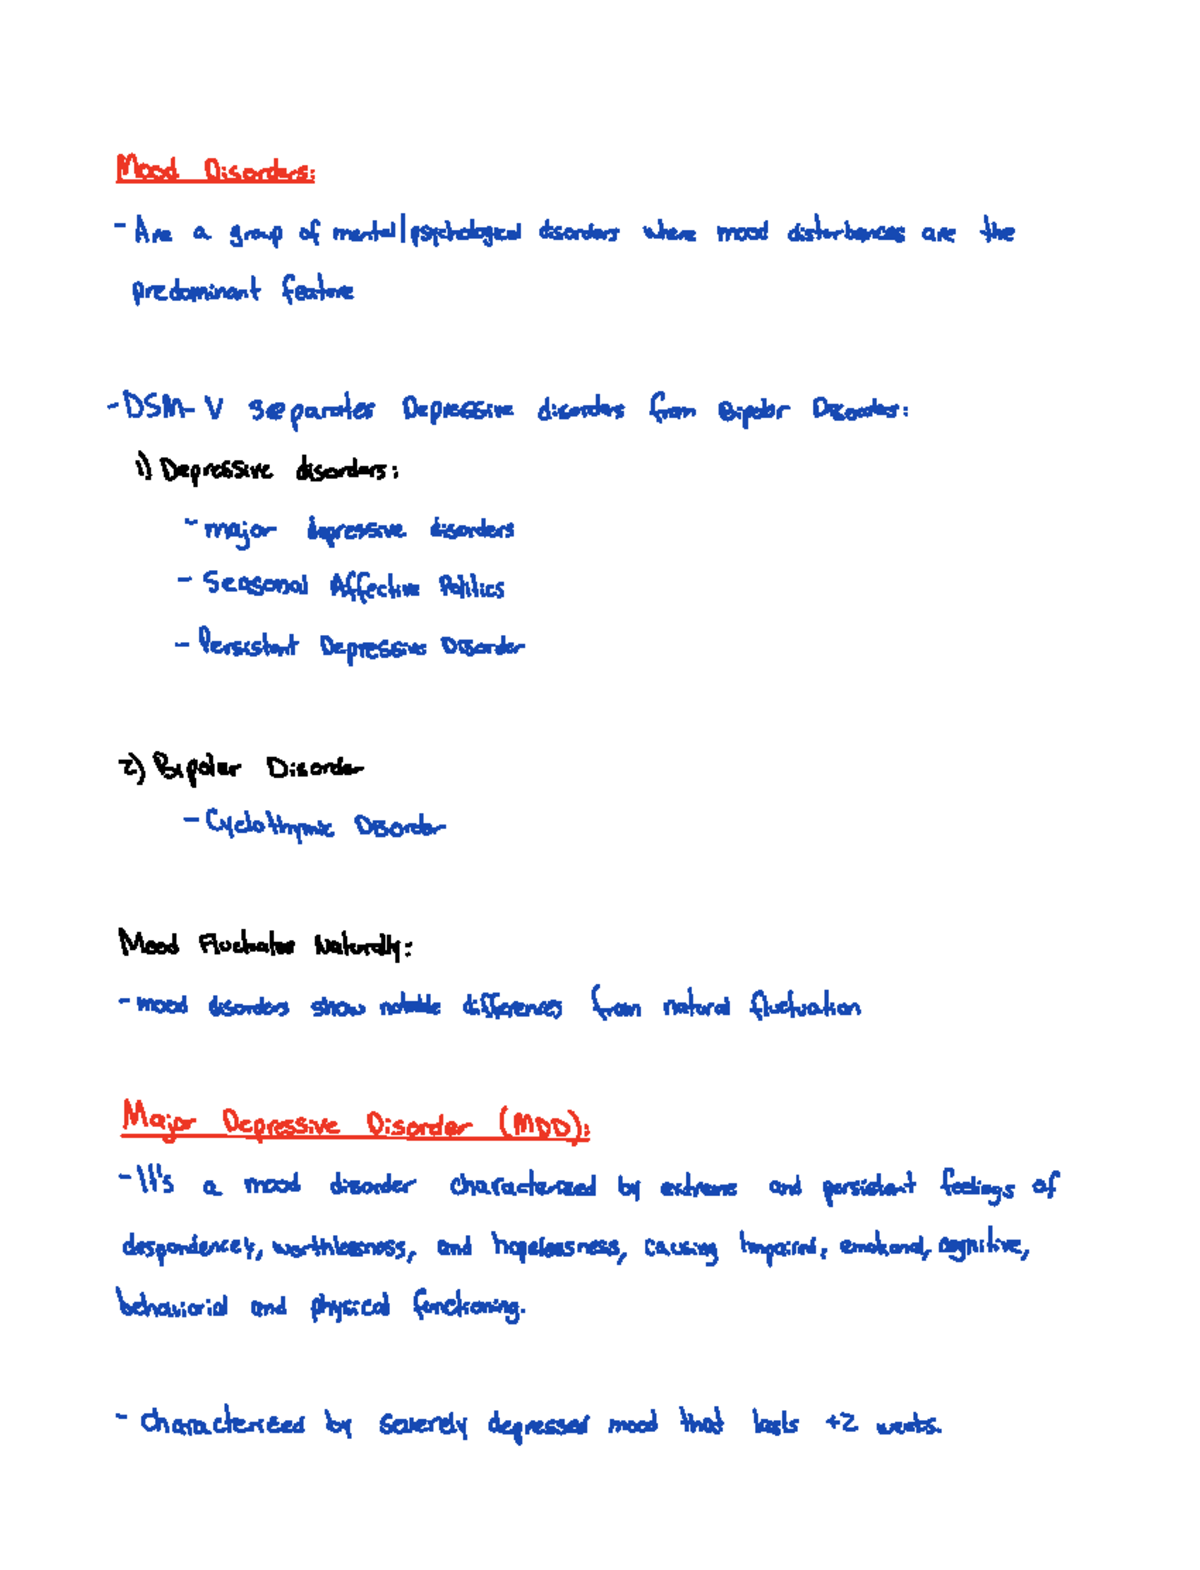 Mood Disorders:
- Are a group of mental/psychological disorders where mood disturbances are the
predominant feature
- DSM-V separates Depressive disorders from Bipolar Disorders:
1) Depressive disorders:
- major depressive disorders
- Seasonal Affective Politics
- Persistent Depressive Disorder
2) Bipolar Disorder
- Cyclothymic Disorder
Mood Fluctuates Naturally:
- mood disorders show notable differences from natural fluctuation
Major Depressive Disorder (MDD):
- It's a mood disorder characterized by extreme and persistent feelings of
despondencey, worthlessness, and hopelessness, causing Impaired, emotional, cognitive,
behaviorial and physical functioning.
- Characterized by severely depressed mood that lasts +2 weeks.